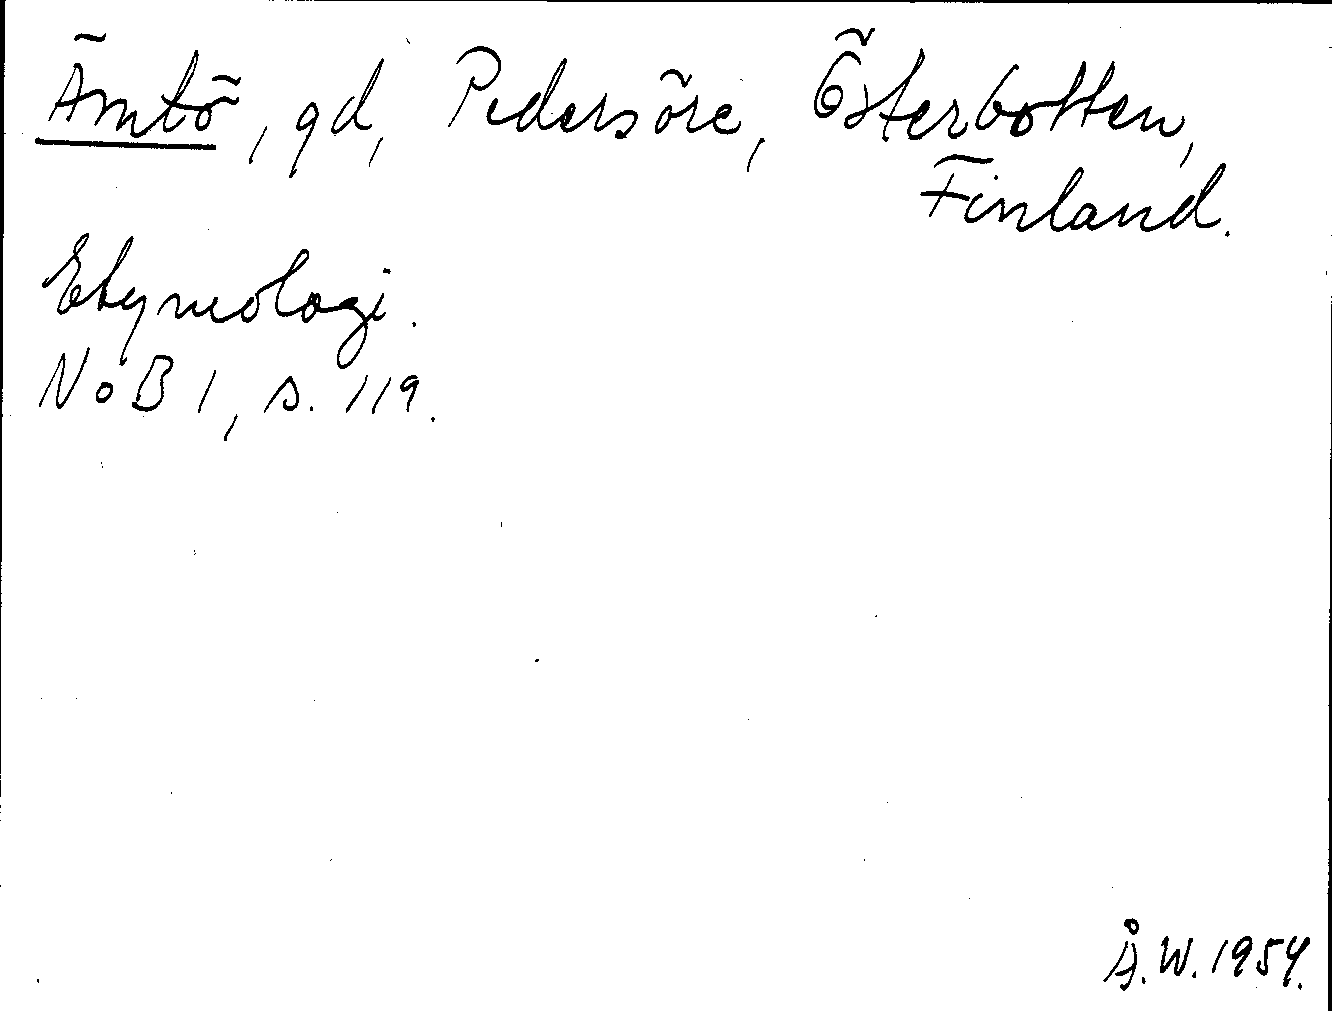 Ämtö, gd, Pedersöre, Österbotten,
Finland.
Etymologi.
NoB 1, s. 119.
Å.W. 1954.